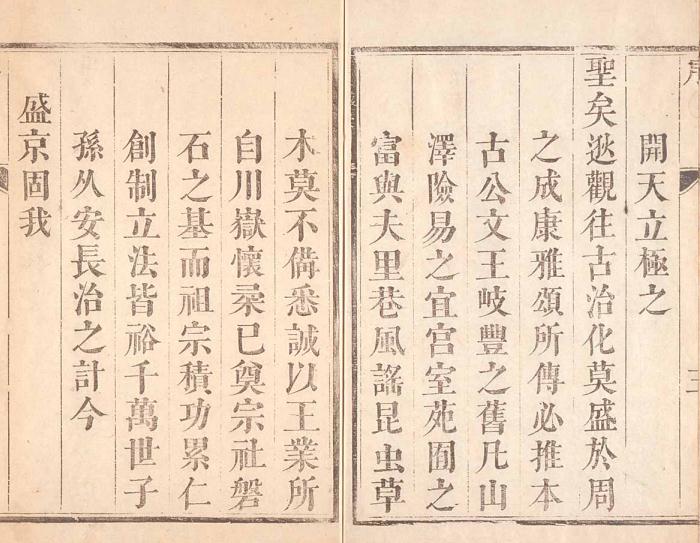 開天立極之
聖矣逖觀往古治化莫盛於周
之成康雅頌所傳必推本
古公文王岐豐之舊凡山
澤險易之宜宮室苑囿之
富與夫里巷風謠昆虫草
木莫不備悉誠以王業所
自川嶽懷柔已奠宗社磐
石之基而祖宗積功累仁
創制立法皆裕千萬世子
孫久安長治之計今
盛京固我